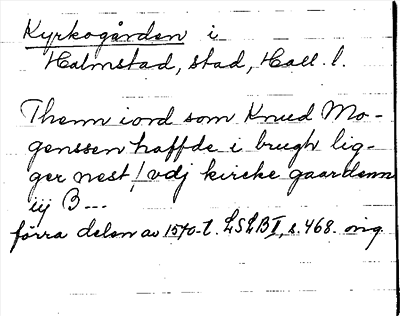 Kyrkogården i
Halmstad, stad, Hall. l.
Thenn iord som Knud Mo-
genssen haffde i brugh lig-
ger nest ! vdj kircke gaardenn
iij B---
förra delen av 1570-t. LSLB I, s. 468. orig.